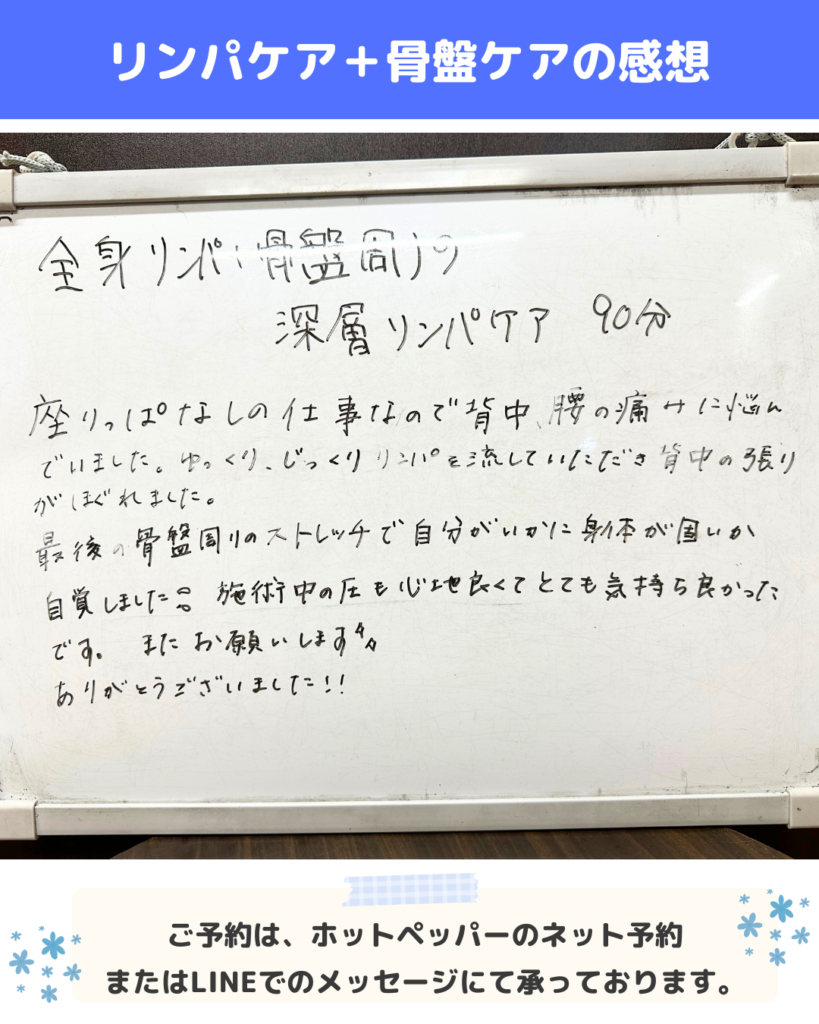 リンパケア＋骨盤ケアの感想
全身リンパ、骨盤周りの
深層リンパケア 90分
座りっぱなしの仕事なので背中、腰の痛みに悩ん
でいました。ゆっくり、じっくりリンパを流していただき背中の張り
がほぐれました。
最後の骨盤周りのストレッチで自分がいかに身体が固いか
自覚しました!! 施術中の圧も心地良くてとても気持ち良かった
です。またお願いします
ありがとうございました!!
ご予約は、ホットペッパーのネット予約
またはLINEでのメッセージにて承っております。